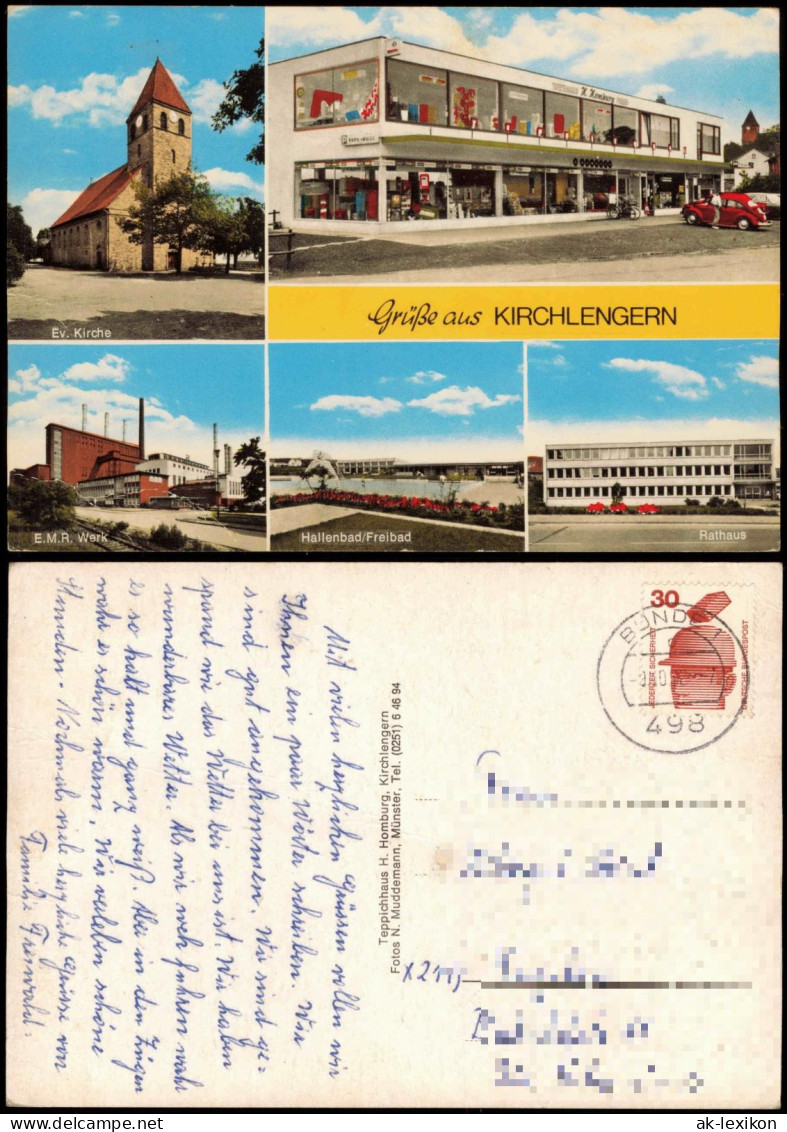 H. Homburg
Ev. Kirche
Grüße aus KIRCHLENGERN
E.M.R. Werk
Hallenbad/Freibad
Rathaus
Mit vielen herzlichen Grüssen wollen wir
Ihnen ein paar Wörter schreiben. Wir
sind gut angekommen. Wir sind ge-
spannt wie das Wetter bei uns ist. Wir haben
wunderbares Wetter. Als wir weh fuhren wahr
es so kalt und ganz weiß. Aber in den Zügen
wahr es schön warm. Wir verleben schöne
Stunden. Nochmals viele herzliche Grüsse von
Familie
Teppichhaus H. Homburg, Kirchlengern
Fotos N. Muddemann, Münster, Tel. (0251) 6 46 94
30
JEDERZEIT SICHERHEIT
DEUTSCHE BUNDESPOST
BÜNDE 1
498
ak-lexikon